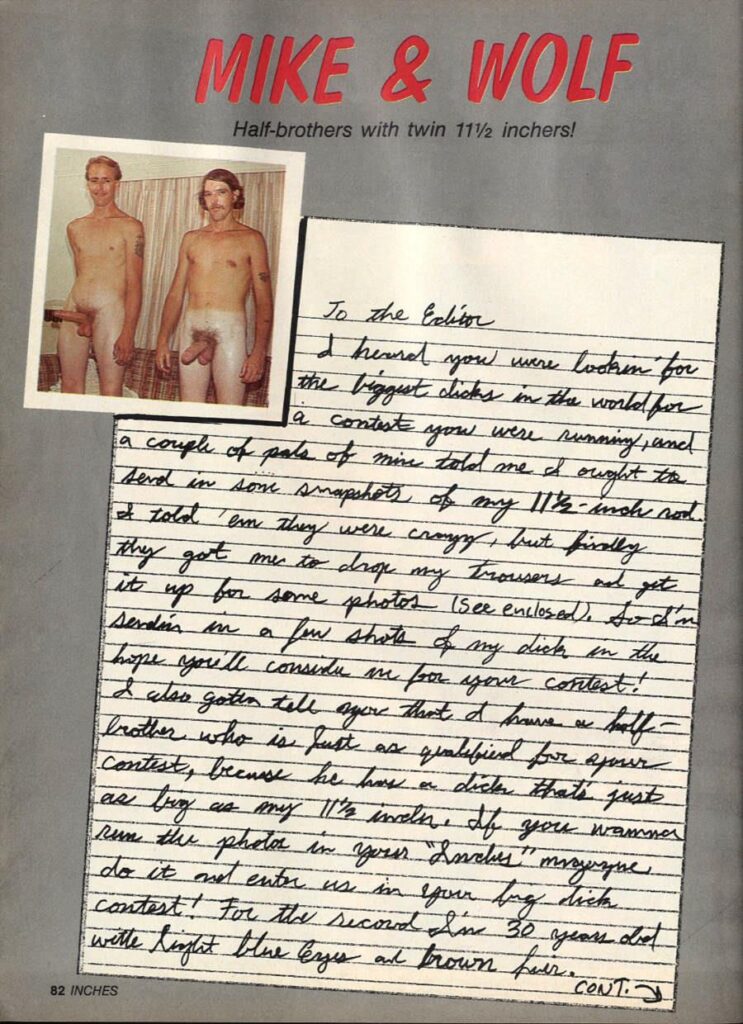 MIKE & WOLF
Half-brothers with twin 11½ inchers!
To the Editor
I heard you were lookin' for
the biggest dicks in the world for
a contest you were running, and
a couple of pals of mine told me I ought to
send in some snapshots of my 11½-inch rod.
I told 'em they were crazy, but finally
they got me to drop my trousers and get
it up for some photos (see enclosed). So I'm
sendin in a few shots of my dick in the
hope you'll consider me for your contest!
I also gotta tell you that I have a half-
brother who is just as qualified for your
contest, because he has a dick that's just
as big as my 11½ incher. If you wanna
run the photos in your "Inches" magazine,
do it and enter us in your big dick
contest! For the record I'm 30 years old
with light blue Eyes and brown hair.
CONT.
82 INCHES